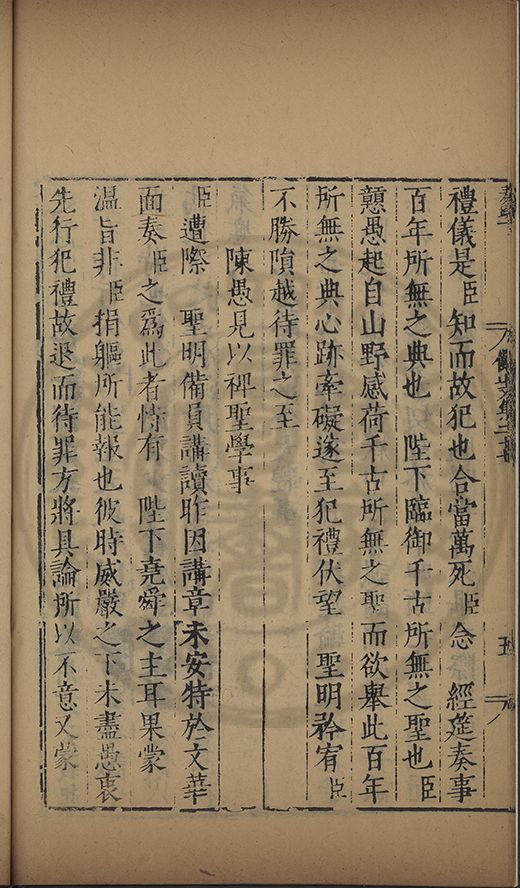 禮儀是臣知而故犯也合當萬死臣念　經筵奏事
百年所無之典也　陛下臨御千古所無之聖也臣
戇愚起自山野感荷千古所無之聖而欲舉此百年
所無之典心跡牽礙遂至犯禮伏望　聖明矜宥臣
不勝隕越待罪之至
陳愚見以裨聖學事
臣遭際　聖明備員講讀昨因講章未安特於文華
面奏臣之爲此者恃有　陛下堯舜之主耳果蒙
溫旨非臣捐軀所能報也彼時威嚴之下未盡愚衷
先行犯禮故退而待罪方將具論所以不意又蒙
五